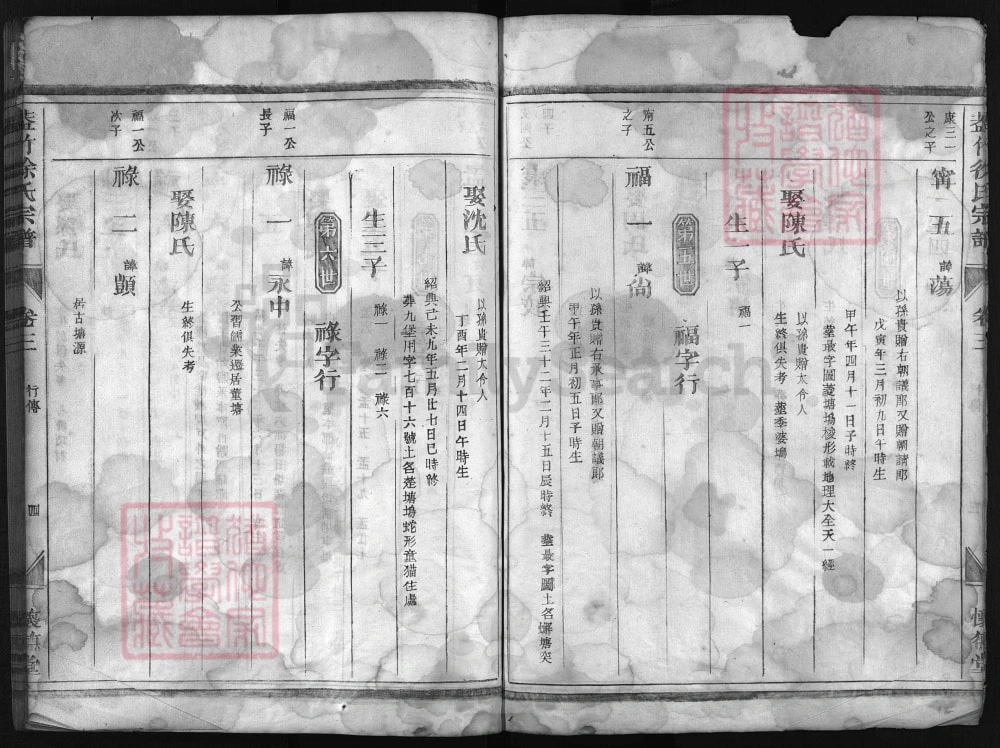 康三一
公之子
甯五 諱蕩
以孫貴贈右朝議郎又贈朝請郎
戊寅年三月初九日午時生
甲午年四月十一日子時終
塟最字圖菱塘塢梭形載地理大全天一經
娶陳氏
以孫貴贈太令人
生終俱失考 塟季婆塢
生一子 福一
第五世 福字行
甯五公
之子
福一 諱尙
以孫貴贈右承事郎又贈朝議郎
甲午年正月初五日子時生
紹興壬午三十二年二月十五日辰時終 塟最字圖土名
娶沈氏
以孫貴贈太令人
丁酉年二月十四日午時生
紹興己未九年五月廿七日巳時終
葬九堡用字七百十六號土名楚塘塢蛇形意猫住處
生三子 祿一 祿二 祿六
第六世 祿字行
福一公
長子
祿一 諱永中
公習儒業遷居董塘
娶陳氏
生終俱失考
福一公
次子
祿二 諱顗
居古塘源
徐氏宗譜 卷三 行傳 四 懷德堂